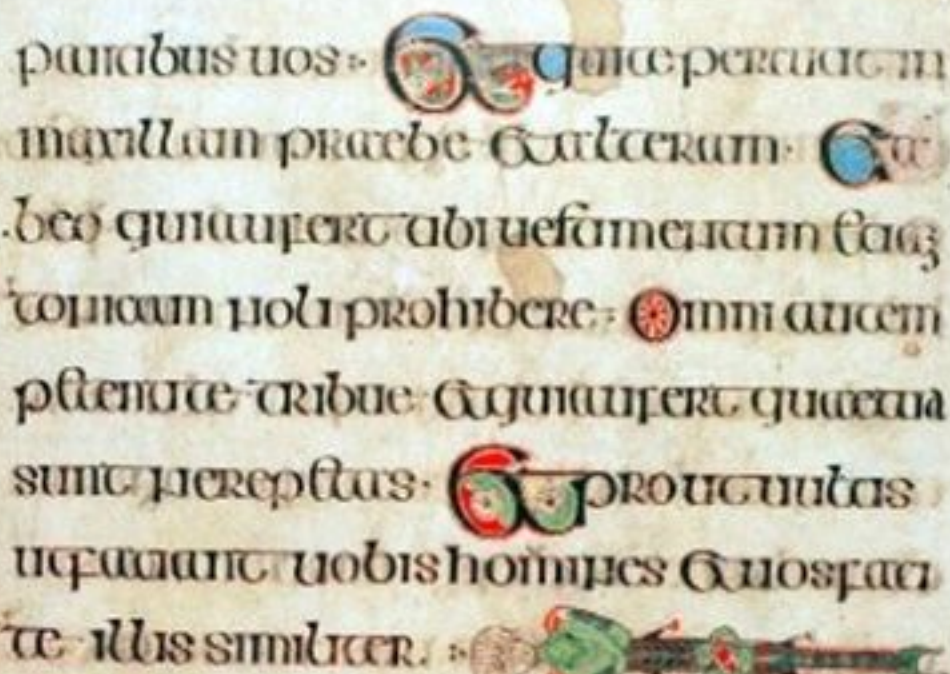 pantibus uos : Et qui te percutit in
maxillam praebe et alteram · Et a
beo qui aufert abi uestamentum etiam
tonicam noli prohibere : Omni autem
petenti te tribue et qui aufert quae tua
sunt ne repetas · Et prout uultis
ut faciant uobis homines et uos faci
te illis similiter . :